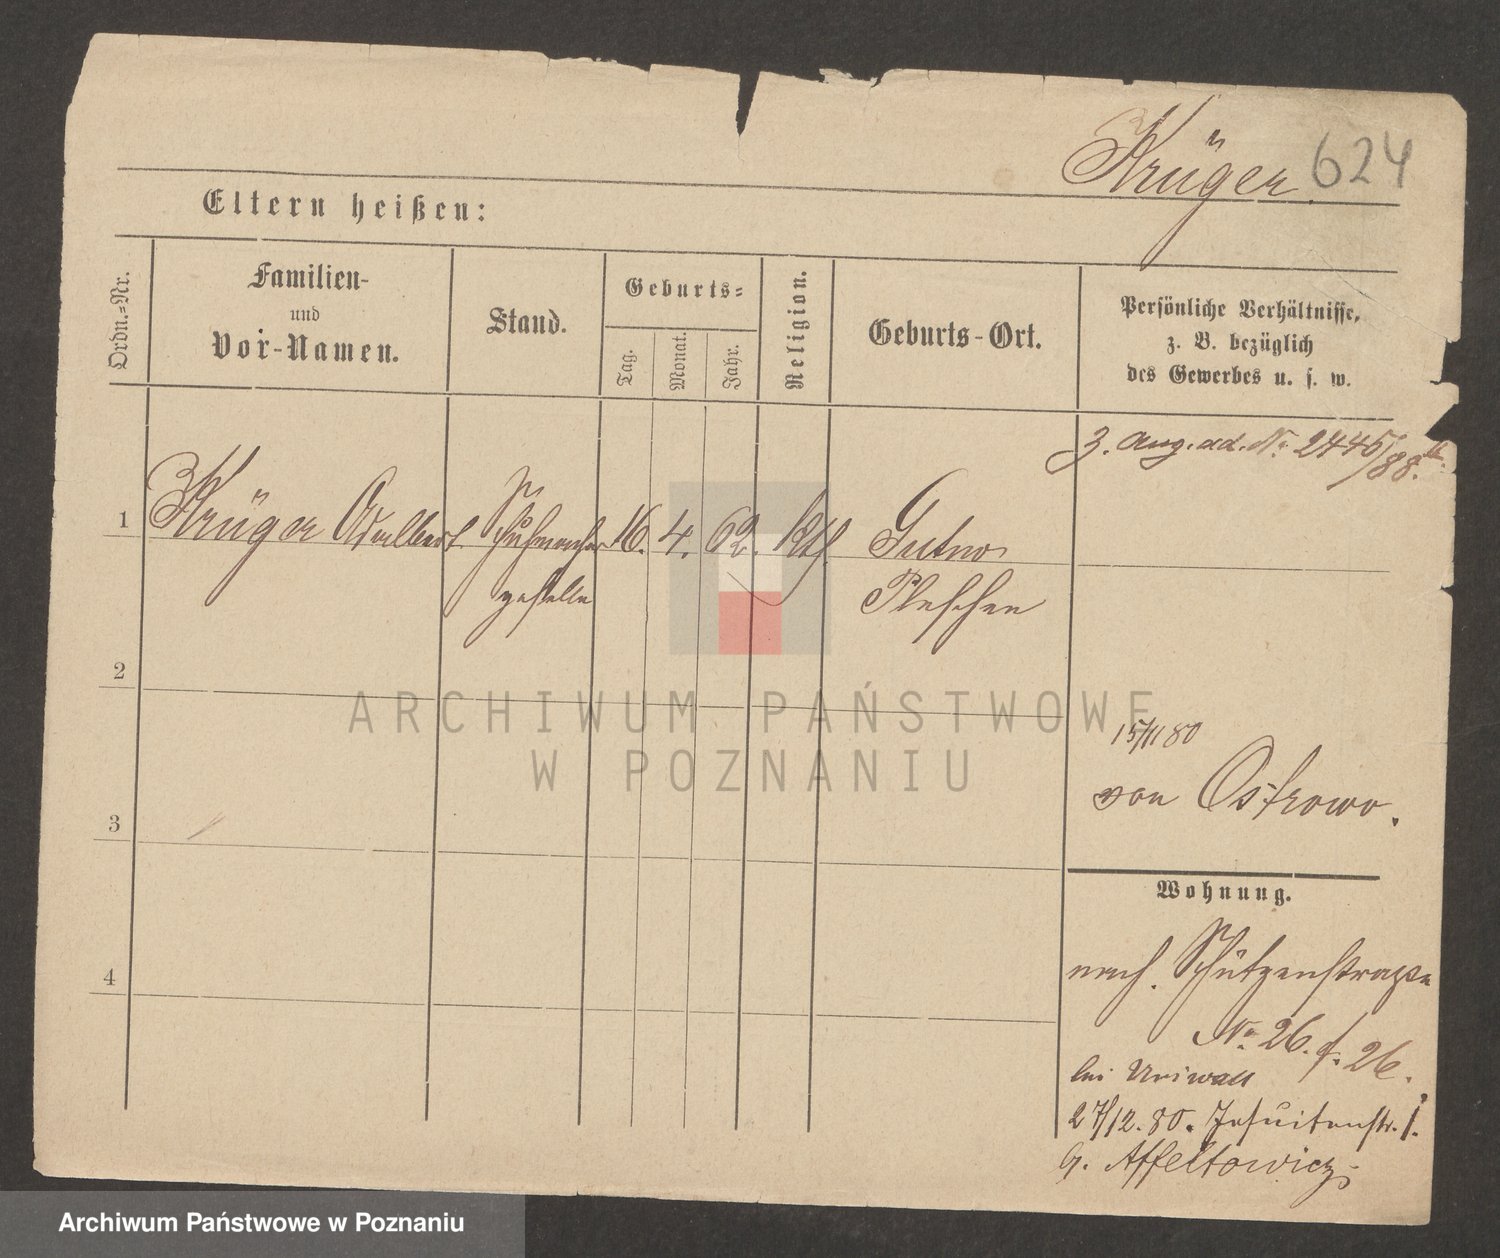 Krüger. 624
Eltern heißen:
Ordn.=Nr.
Familien-
und
Vor-Namen.
Stand.
Geburts=
Tag.
Monat.
Jahr.
Religion.
Geburts-Ort.
Persönliche Verhältnisse,
z. B. bezüglich
des Gewerbes u. s. w.
3. Aug. ad. No. 2445/88.
1 Krüger Adalbert Schuhmacher 16. 4. 62. kth. Gutno
geselle Pleschen
2
ARCHIWUM PAŃSTWOWE
W POZNANIU
15/11 80
von Ostrowo.
3
Wohnung.
nach. Schützenstraße
4
No. 26. f. 26.
bei Uriwall
27/12. 80. Jesuitenstr. 1.
b. Affeltowicz
Archiwum Państwowe w Poznaniu